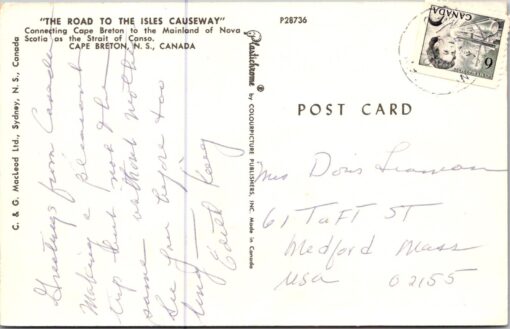 "THE ROAD TO THE ISLES CAUSEWAY"
Connecting Cape Breton to the Mainland of Nova
Scotia as the Strait of Canso.
CAPE BRETON, N. S., CANADA
P28736
C. & G. MacLeod Ltd., Sydney, N. S., Canada
Greetings from Canada
Making a pleasant
trip but not the
same without
See you before too
long
Plastichrome ®
by COLOURPICTURE PUBLISHERS, INC. Made in Canada
CANADA
6
POST CARD
Mrs Doris
61 Taft ST
Medford Mass
USA 02155